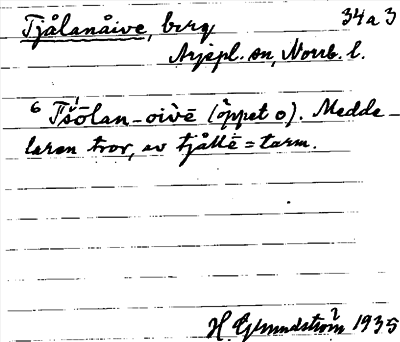 Tjålanåive, berg 34a3
Arjepl. sn, Norrb. l.
6 Tšōlan-oivē (öppet o). Medde-
laren tror, av tjållē = tarm.
H. Gyllundström 1935